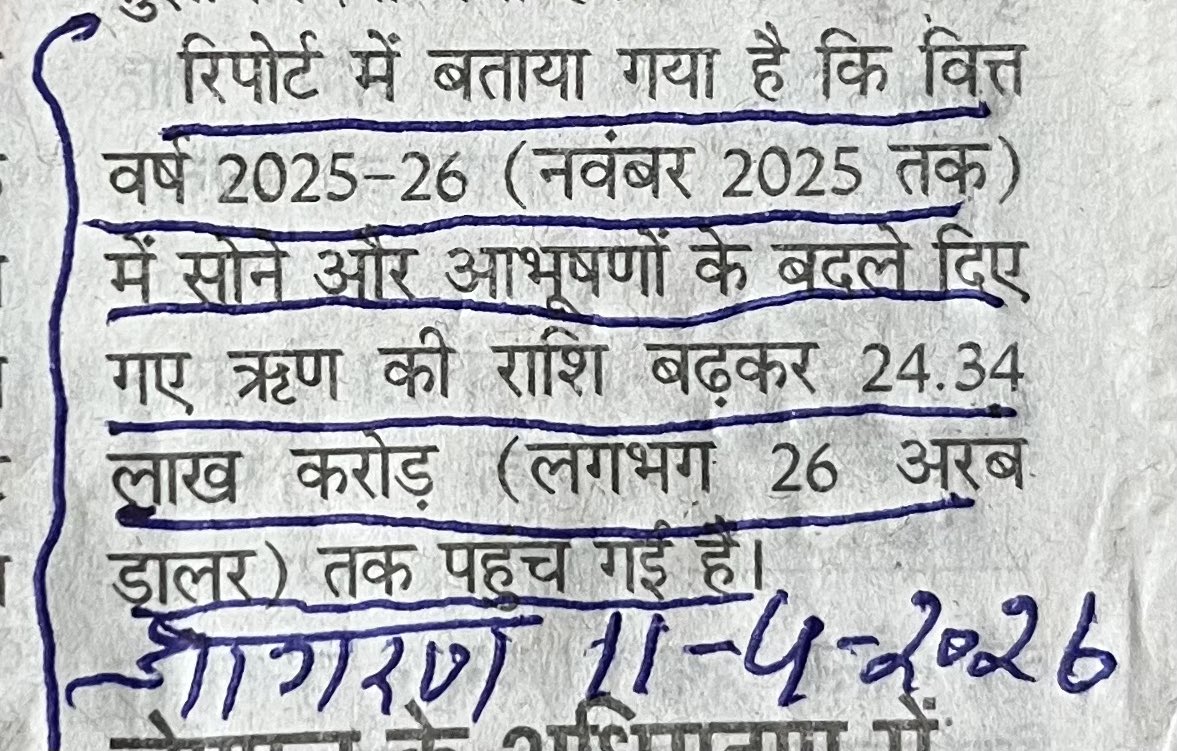 रिपोर्ट में बताया गया है कि वित्त
वर्ष 2025-26 (नवंबर 2025 तक)
में सोने और आभूषणों के बदले दिए
गए ऋण की राशि बढ़कर 24.34
लाख करोड़ (लगभग 26 अरब
डालर) तक पहुंच गई है।
जागरण 11-4-2026
के अधिग्रहण में